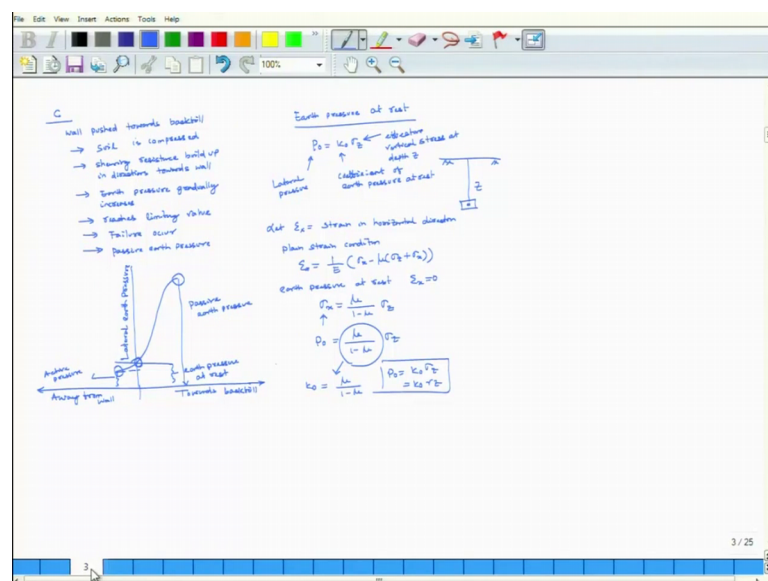 File Edit View Insert Actions Tools Help
B I
100%
C
Wall pushed towards backfill
→ Soil is compressed
→ Shearing resistance build up
in directions towards wall
→ Earth pressure gradually
increase
→ reaches limiting value
→ Failure occur
→ Passive earth pressure
Lateral earth pressure
Passive
earth pressure
Active
pressure
earth pressure
at rest
Away from
wall
Towards backfill
Earth pressure at rest
P₀ = K₀ σz ← effective
vertical stress at
depth z
Lateral
pressure
coefficient of
earth pressure at rest
z
Let Ɛx = strain in horizontal direction
plain strain condition
Ɛx = 1/E (σx - μ(σz + σx))
earth pressure at rest Ɛx = 0
σx = μ/(1-μ) σz
P₀ = μ/(1-μ) σz
K₀ = μ/(1-μ)
P₀ = K₀ σz
= K₀ γ z
3 / 25
3